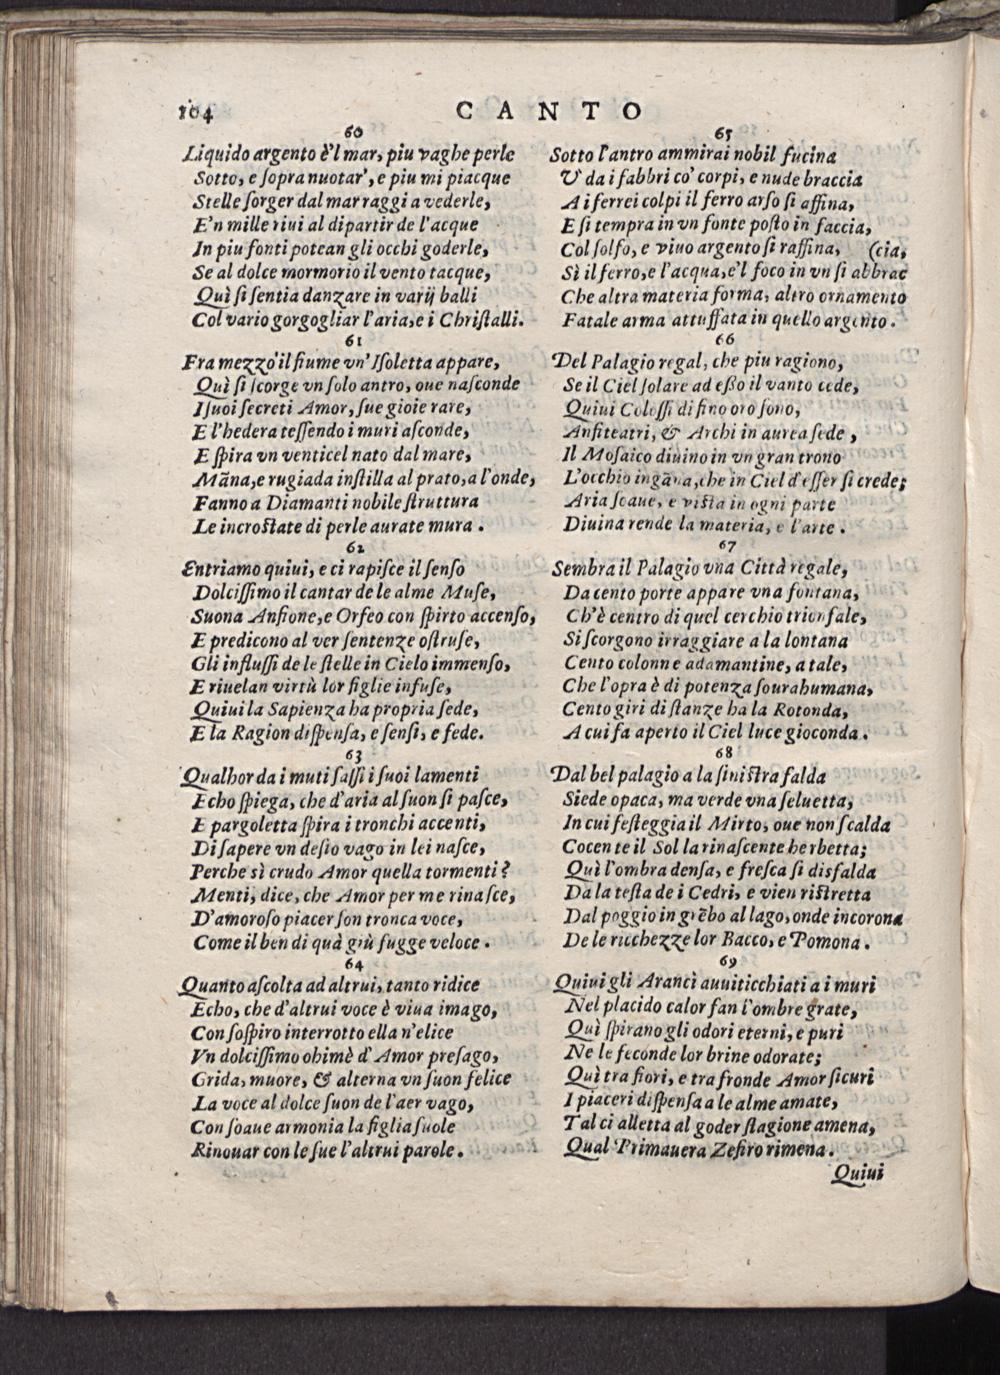 104
CANTO
60
Liquido argento è'l mar, piu vaghe perle
Sotto, e ſopra nuotar', e piu mi piacque
Stelle ſorger dal mar raggi a vederle,
E'n mille riui al dipartir de l'acque
In piu fonti potean gli occhi goderle,
Se al dolce mormorio il vento tacque,
Quì ſi ſentia danzare in varij balli
Col vario gorgogliar l'aria, e i Chriſtalli.
61
Fra mezzo il fiume vn' Iſoletta appare,
Quì ſi ſcorge vn ſolo antro, oue naſconde
I ſuoi ſecreti Amor, ſue gioie rare,
E l'hedera teſſendo i muri aſconde,
E ſpira vn venticel nato dal mare,
Mãna, e rugiada inſtilla al prato, a l'onde,
Fanno a Diamanti nobile ſtruttura
Le incroſtate di perle aurate mura.
62
Entriamo quiui, e ci rapiſce il ſenſo
Dolciſſimo il cantar de le alme Muſe,
Suona Anfione, e Orfeo con ſpirto accenſo,
E predicono al ver ſentenze oſtruſe,
Gli influſſi de le ſtelle in Cielo immenſo,
E riuelan virtù lor figlie infuſe,
Quiui la Sapienza ha propria ſede,
E la Ragion diſpenſa, e ſenſi, e fede.
63
Qualhor da i muti ſaſſi i ſuoi lamenti
Echo ſpiega, che d'aria al ſuon ſi paſce,
E pargoletta ſpira i tronchi accenti,
Di ſapere vn deſio vago in lei naſce,
Perche sì crudo Amor quella tormenti?
Menti, dice, che Amor per me rinaſce,
D'amoroſo piacer ſon tronca voce,
Come il ben di quà giù fugge veloce.
64
Quanto aſcolta ad altrui, tanto ridice
Echo, che d'altrui voce è viua imago,
Con ſoſpiro interrotto ella n'elice
Vn dolciſſimo ohimè d'Amor preſago,
Grida, muore, & alterna vn ſuon felice
La voce al dolce ſuon de l'aer vago,
Con ſoaue armonia la figlia ſuole
Rinouar con le ſue l'altrui parole.
65
Sotto l'antro ammirai nobil fucina
V' da i fabbri co' corpi, e nude braccia
A i ferrei colpi il ferro arſo ſi affina,
E ſi tempra in vn fonte poſto in faccia,
Col ſolfo, e viuo argento ſi raffina, (cia,
Sì il ferro, e l'acqua, e'l foco in vn ſi abbrac
Che altra materia forma, altro ornamento
Fatale arma attuffata in quello argento.
66
Del Palagio regal, che piu ragiono,
Se il Ciel ſolare ad eßo il vanto cede,
Quiui Coloſſi di fino oro ſono,
Anfiteatri, & Archi in aurea ſede,
Il Moſaico diuino in vn gran trono
L'occhio ingãna, che in Ciel d'eſſer ſi crede;
Aria ſoaue, e viſta in ogni parte
Diuina rende la materia, e l'arte.
67
Sembra il Palagio vna Città regale,
Da cento porte appare vna fontana,
Ch'è centro di quel cerchio trionfale,
Si ſcorgono irraggiare a la lontana
Cento colonne adamantine, a tale,
Che l'opra è di potenza ſourahumana,
Cento giri di ſtanze ha la Rotonda,
A cui fa aperto il Ciel luce gioconda.
68
Dal bel palagio a la ſiniſtra falda
Siede opaca, ma verde vna ſeluetta,
In cui feſteggia il Mirto, oue non ſcalda
Cocente il Sol la rinaſcente herbetta;
Quì l'ombra denſa, e freſca ſi disfalda
Da la teſta de i Cedri, e vien riſtretta
Dal poggio in grẽbo al lago, onde incorona
De le ricchezze lor Bacco, e Pomona.
69
Quiui gli Aranci auuiticchiati a i muri
Nel placido calor fan l'ombre grate,
Quì ſpirano gli odori eterni, e puri
Ne le feconde lor brine odorate;
Quì tra fiori, e tra fronde Amor ſicuri
I piaceri diſpenſa a le alme amate,
Tal ci alletta al goder ſtagione amena,
Qual Primauera Zefiro rimena.
Quiui